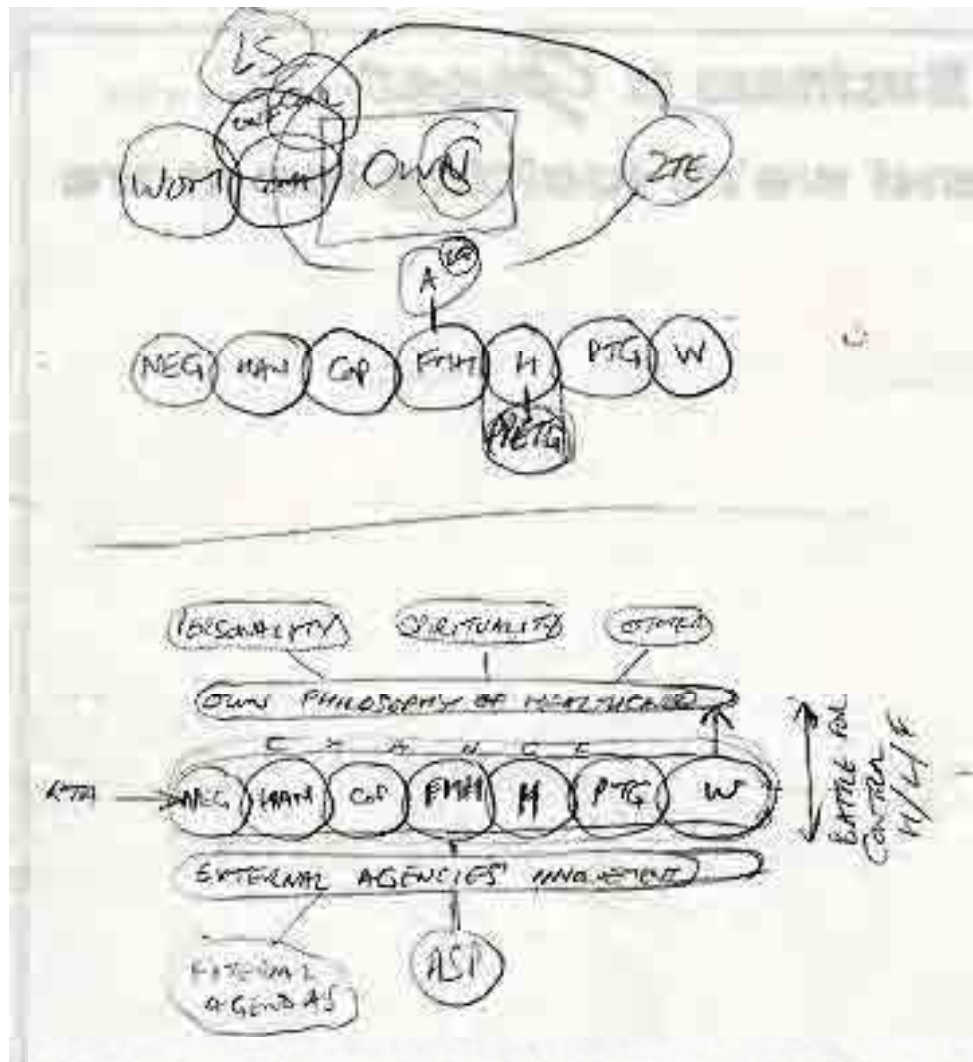 LS
WOM
OWN
ZTE
A
NEG HAW CoP FMH H PTG W
PRETG
PERSONALITY SPIRITUALITY OTHER
OWN PHILOSOPHY OF HEALTHCARE
C H A N G E
RTA NEG HAW CoP FMH H PTG W
BATTLE FOR
CONTROL
EXTERNAL AGENCIES' INVOLVEMENT
EXTERNAL
AGENDAS
ASP